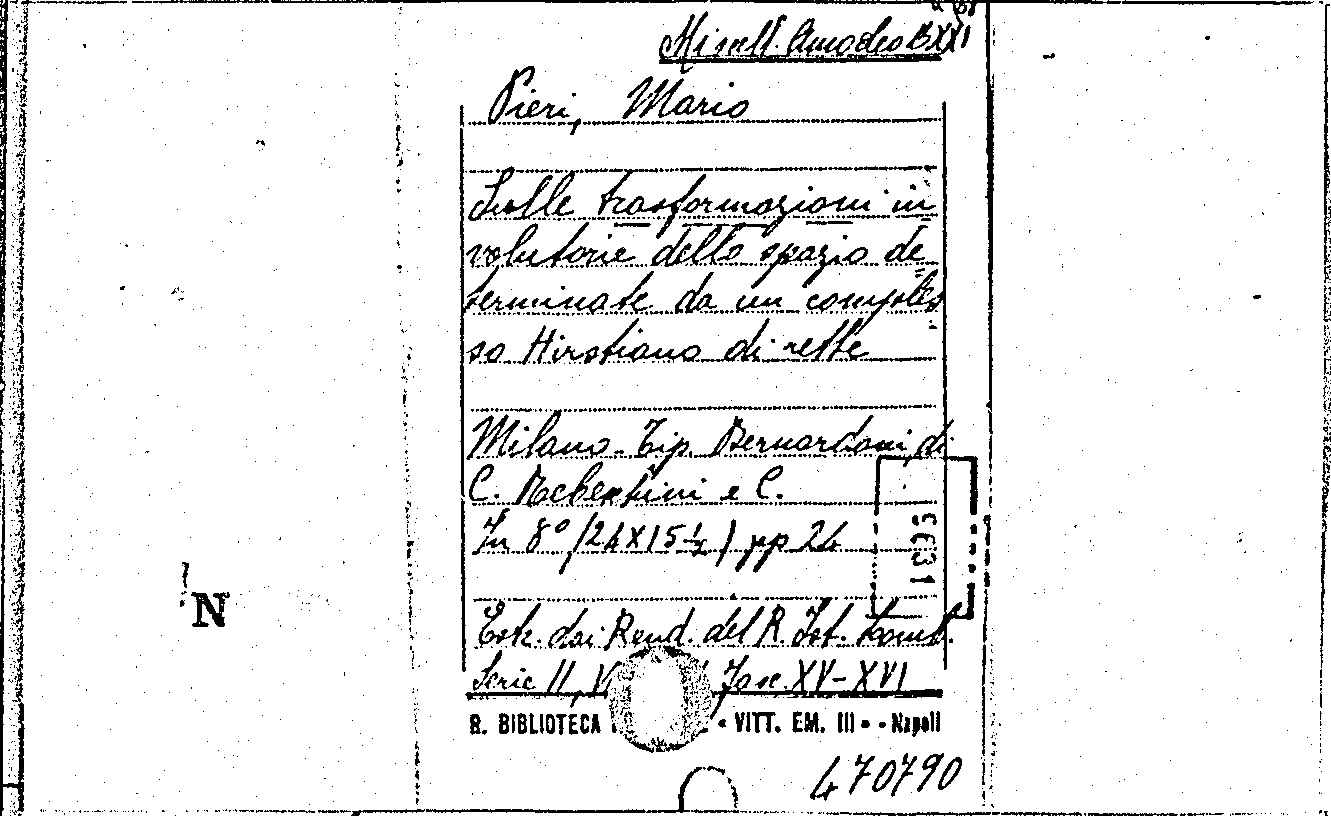 Miscell. Amodeo B XXI
Pieri, Mario
Sulle trasformazioni in
volutorie dello spazio de
terminate da un comples
so Hirstiano di rette
Milano. Tip. Bernardoni, di
C. Rebeschini e C.
In 8° (24X15½) pp 24
Estr. dai Rend. del R. Ist. Lomb.
Serie II, V Fasc. XV-XVI
R. BIBLIOTECA « VITT. EM. III » - Napoli
470790
N